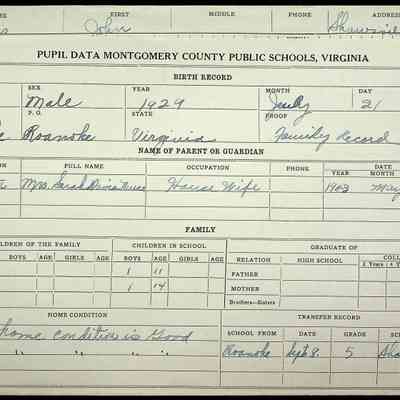 FIRST MIDDLE PHONE ADDRESS
John
PUPIL DATA MONTGOMERY COUNTY PUBLIC SCHOOLS, VIRGINIA
BIRTH RECORD
SEX YEAR MONTH DAY
Male 1929 July 21
P. O. STATE PROOF
Roanoke Virginia Family Record
NAME OF PARENT OR GUARDIAN
FULL NAME OCCUPATION PHONE DATE
YEAR MONTH
Mrs. Sarah House Wife 1902 May
FAMILY
CHILDREN OF THE FAMILY CHILDREN IN SCHOOL GRADUATE OF
BOYS AGE GIRLS AGE BOYS AGE GIRLS AGE RELATION HIGH SCHOOL
1 11 FATHER
1 14 MOTHER
Brothers—Sisters
HOME CONDITION TRANSFER RECORD
home condition is Good SCHOOL FROM DATE GRADE
" " " " Roanoke Sept 8. 5